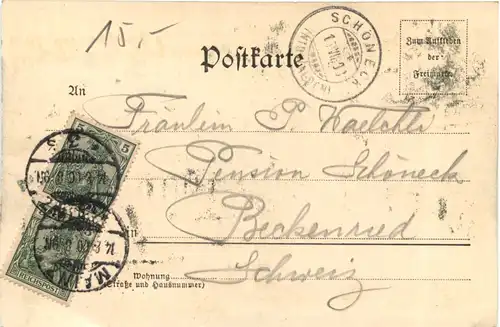 15.-
SCHÖNECK
Postkarte
Zum Aufkleben
der
Freimarke.
An
Fräulein P. Waechter
5
Pension Schöneck
MAINZ
in
Beckenried
REICHSPOST
Schweiz
Wohnung
(Straße und Hausnummer)